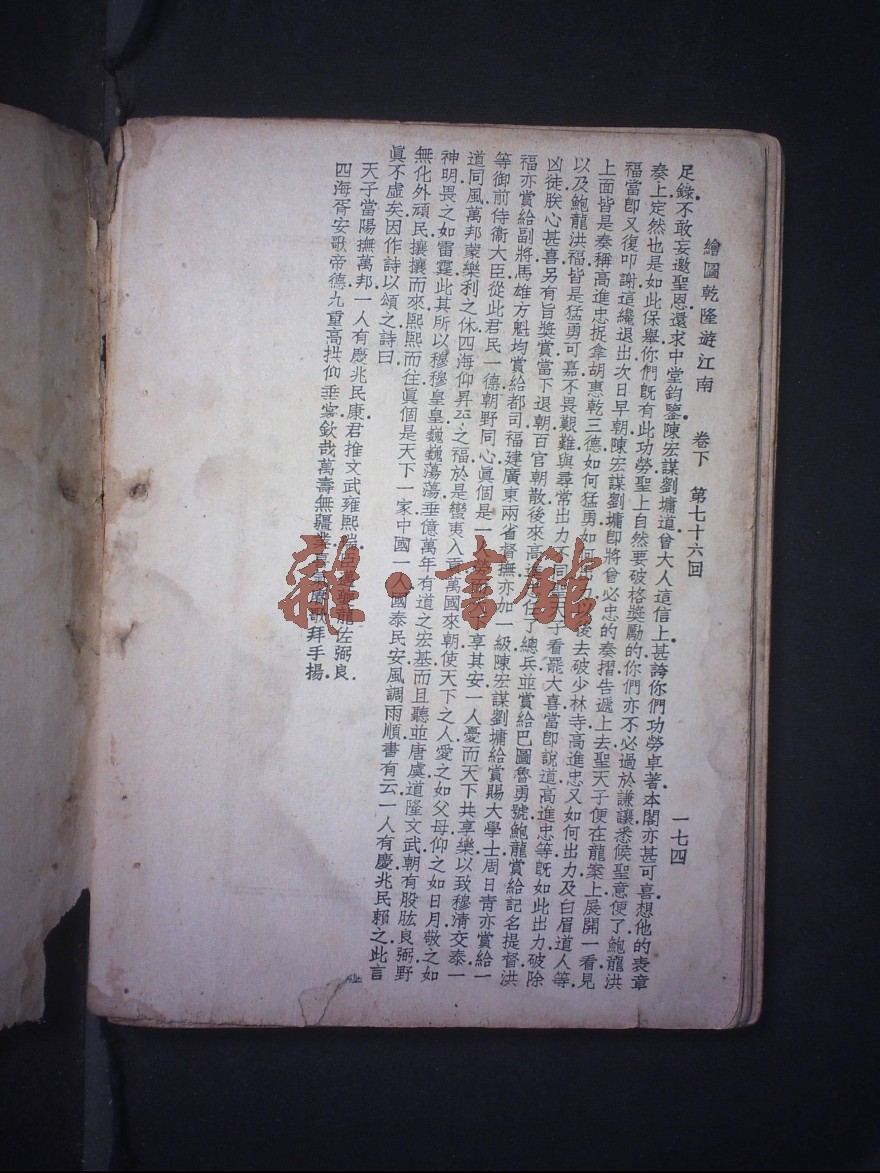 繪圖乾隆遊江南　卷下　第七十六回　一七四
足錄不敢妄邀聖恩還求中堂鈞鑒陳宏謀劉墉道曾大人這信上甚誇你們功勞卓著本閣亦甚可喜想他的表章
奏上定然也是如此保舉你們旣有此功勞聖上自然要破格獎勵的你們亦不必過於謙讓悉候聖意便了鮑龍洪
福當卽又復叩謝這纔退出次日早朝陳宏謀劉墉卽將曾必忠的奏摺告遞上去聖天子便在龍案上展開一看見
上面皆是奏稱高進忠捉拿胡惠乾三德如何猛勇如何出力以後去破少林寺高進忠又如何出力及白眉道人等
以及鮑龍洪福皆是猛勇可嘉不畏艱難與尋常出力不同聖天子看罷大喜當卽說道高進忠等旣如此出力破除
凶徒朕心甚喜另有旨獎賞當下退朝百官朝散後來高進忠任了總兵並賞給巴圖魯勇號鮑龍賞給記名提督洪
福亦賞給副將馬雄方魁均賞給都司福建廣東兩省督撫亦加一級陳宏謀劉墉給賞賜大學士周日青亦賞給一
等御前侍衛大臣從此君民一德朝野同心眞個是一人勞而天下享其安一人憂而天下共享樂以致穆清交泰一
道同風萬邦蒙樂利之休四海仰昇平之福於是蠻夷入貢萬國來朝使天下之人愛之如父母仰之如日月敬之如
神明畏之如雷霆此其所以穆穆皇皇巍巍蕩蕩垂億萬年有道之宏基而且聽並唐虞道隆文武朝有股肱良弼野
無化外頑民攘攘而來熙熙而往眞個是天下一家中國一人國泰民安風調雨順書有云一人有慶兆民賴之此言
眞不虛矣因作詩以頌之詩曰
天子當陽撫萬邦一人有慶兆民康君推文武雍熙龍佐弼良
四海胥安歌帝德九重高拱仰垂裳欽哉萬壽無疆歌拜手揚
雜·書館